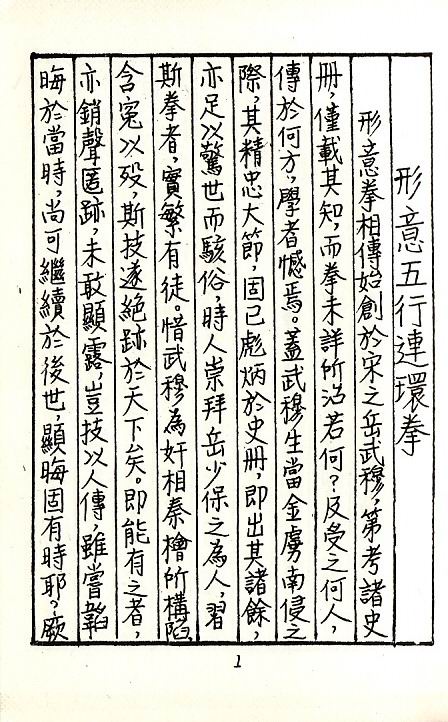 形意五行連環拳
形意拳相傳始創於宋之岳武穆，第考諸史
册，僅載其知，而拳未詳所沿若何？及受之何人，
傳於何方，學者憾焉。蓋武穆生當金虜南侵之
際，其精忠大節，固已彪炳於史册，即出其諸餘，
亦足以驚世而駭俗，時人崇拜岳少保之為人，習
斯拳者，實繁有徒。惜武穆為奸相秦檜所構陷，
含冤以歿，斯技遂絕跡於天下矣。即能有之者，
亦銷聲匿跡，未敢顯露，豈技以人傳，雖嘗韜
晦於當時，尚可繼續於後世，顯晦固有時耶？厥
1